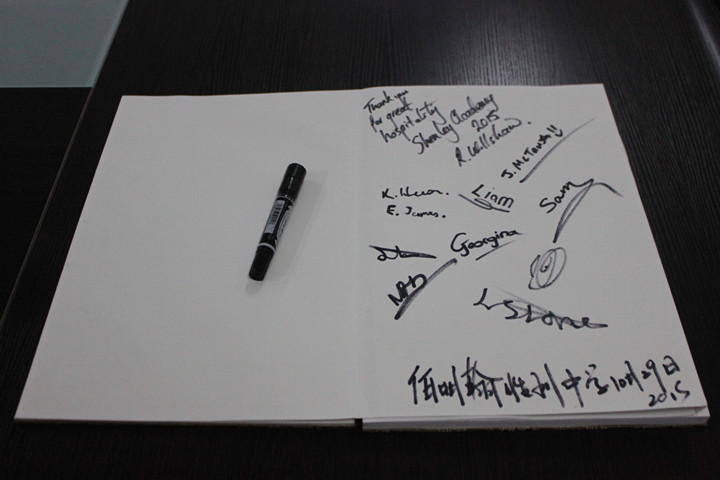 Thank you
for great
hospitality
Shenley Academy
2015
R. Willshaw.
J. McTavish
K. Huon.
Liam
Sam
E. James.
Georgina
L Stone
伯明翰 中学 10月29日
2015